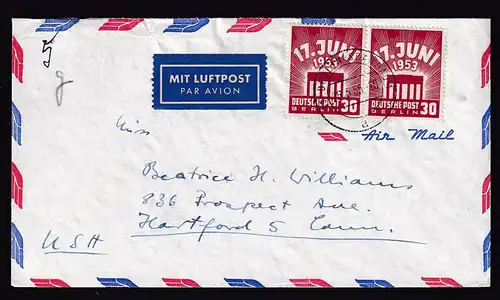 5
g
MIT LUFTPOST
PAR AVION
17. JUNI
1953
DEUTSCHE POST
BERLIN
30
17. JUNI
1953
DEUTSCHE POST
BERLIN
30
Air Mail
Miss
Beatrice H. Williams
836 Prospect Ave.
Hartford 5 Conn.
USA